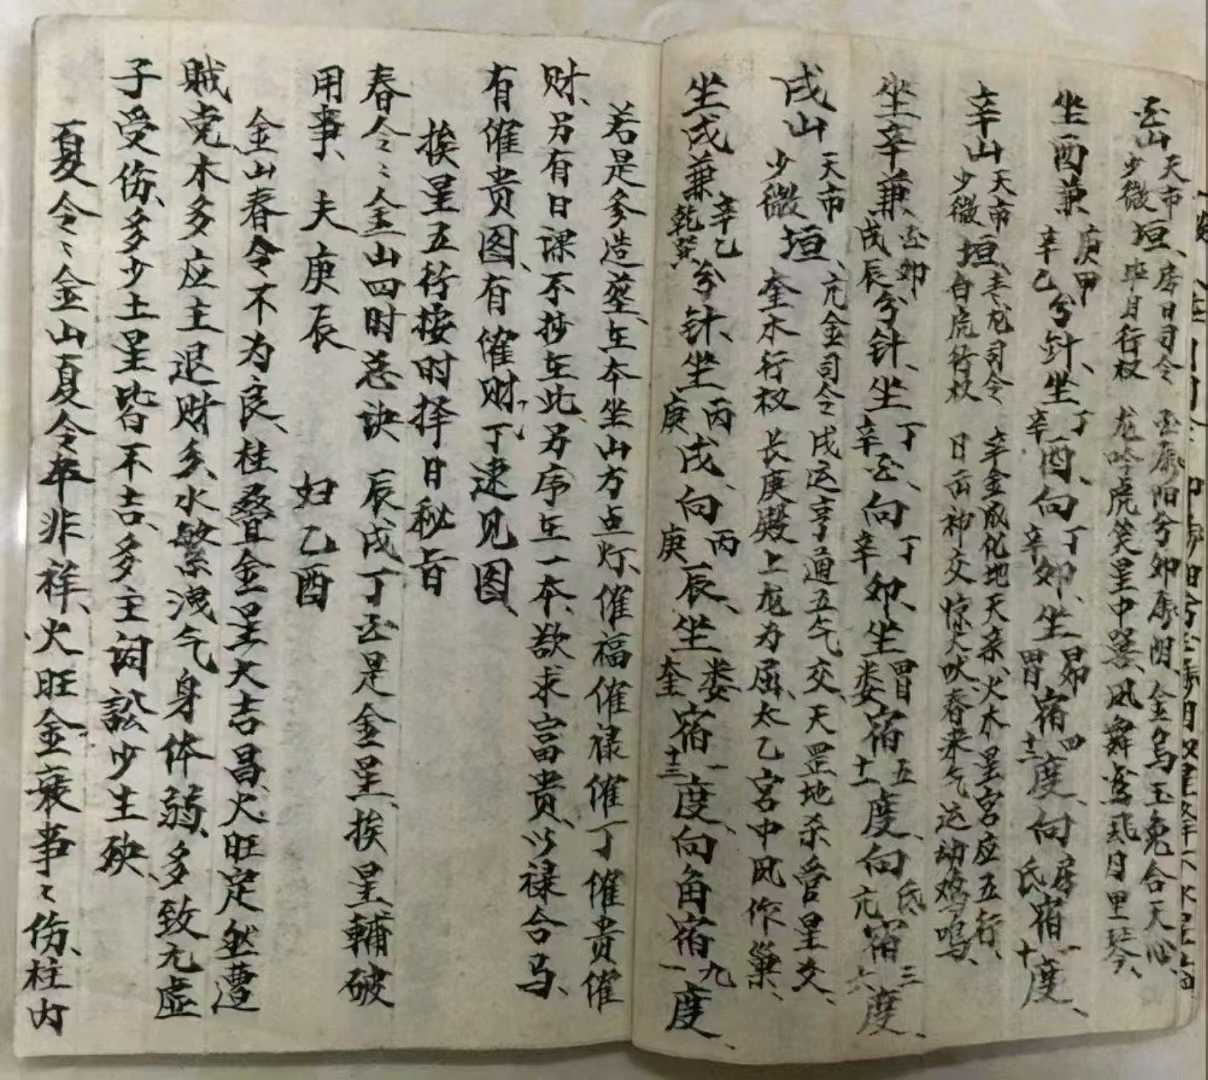 酉山天市少微垣、房日司令毕月行权 酉为阳兮卯为阴、金乌玉兔合天心、龙吟虎笑星中翼、凤舞鸾飛月里琴、
坐酉兼庚甲辛乙兮针、坐丁辛酉、向丁辛卯、坐昴胃宿四十三度、向房氐宿一十度、
辛山天市少微垣、苍龙司令白虎行权 辛金成化地天亲、火木星宫应五行、日吉神交惊犬吠、春来气运动鸡鸣、
坐辛兼酉卯戌辰兮针、坐丁辛酉、向丁辛卯、坐胃娄宿五十一度、向氐亢宿三六度、
戌山天市少微垣、亢金司令奎木行权 戌运亨通五气交、天罡地杀会星爻、长庚殿上龙为屈、太乙宫中凤作巢、
坐戌兼辛乙乾巽兮针、坐丙庚戌、向丙庚辰、坐娄奎宿一十三度、向角宿九一度、
若是多造葬、在本坐山方点灯、催福催禄催丁催贵催
财、另有日课不抄在此、另序在一本、欲求富贵、以禄合马、
有催贵图、有催财、丁逮见图、
挨星五行按时择日秘旨
春令：金山四时总诀 辰戌丁酉是金星、挨星輔破
用事、夫庚辰 妇乙酉
金山春令不为良、柱叠金星大吉昌、火旺定然遭
贼党、木多应主退财多、水繁洩气身体弱、多致尢虚
子受伤、多少土星皆不吉、多主词訟少生殃、
夏令：金山夏令年非祥、火旺金衰事：伤、柱内